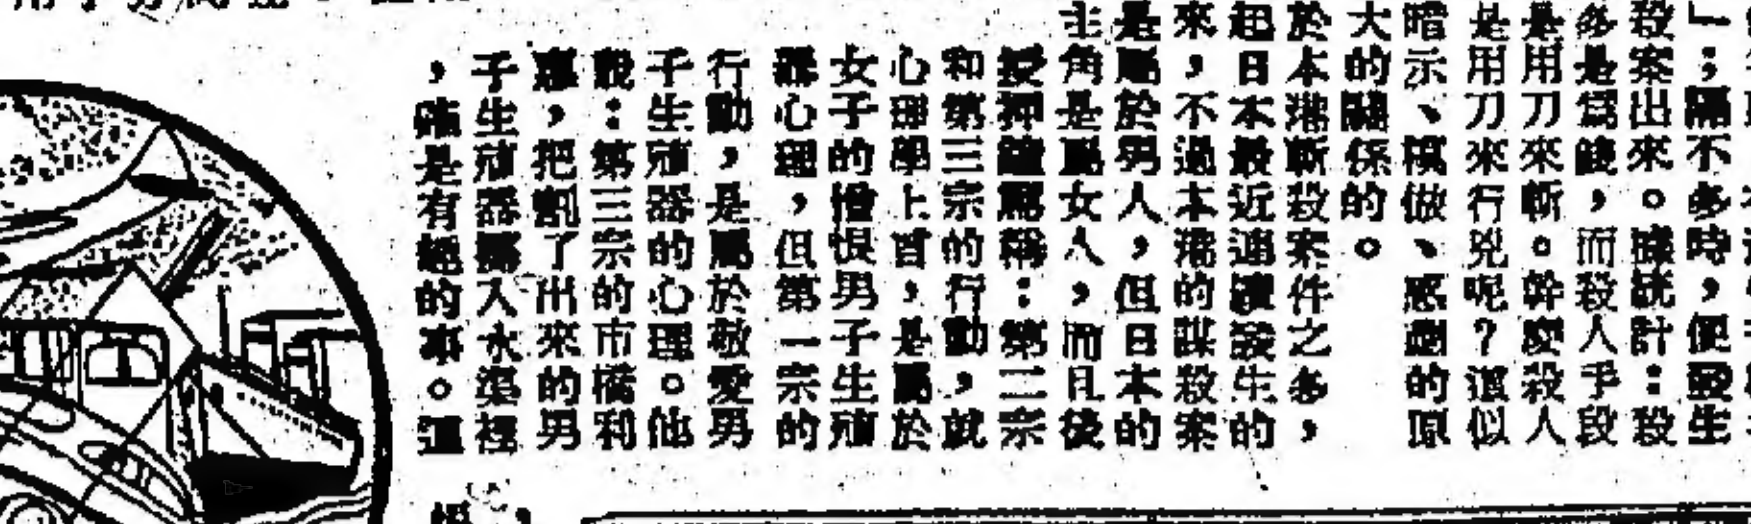 」；隔不多時，便發生
殺案出來。據統計：殺
多是爲錢，而殺人手段
是用刀來斬。幹麼殺人
是用刀來行兇呢？這似
暗示、模倣、感 的原
大的關係的。
於本港斬殺案件之多，
起日本最近連續發生的
來，不過本港的謀殺案
是屬於男人，但日本的
主角是屬女人，而且後
援押鐘罵稱：第二宗
和第三宗的行動，就
心理學上言，是屬於
女子的憎恨男子生殖
器心理，但第一宗的
行動，是屬於敬愛男
子生殖器的心理。他
說：第三宗的市橋利
惠，把割了出來的男
子生殖器擲入水渠裡
，確是有 的事。這